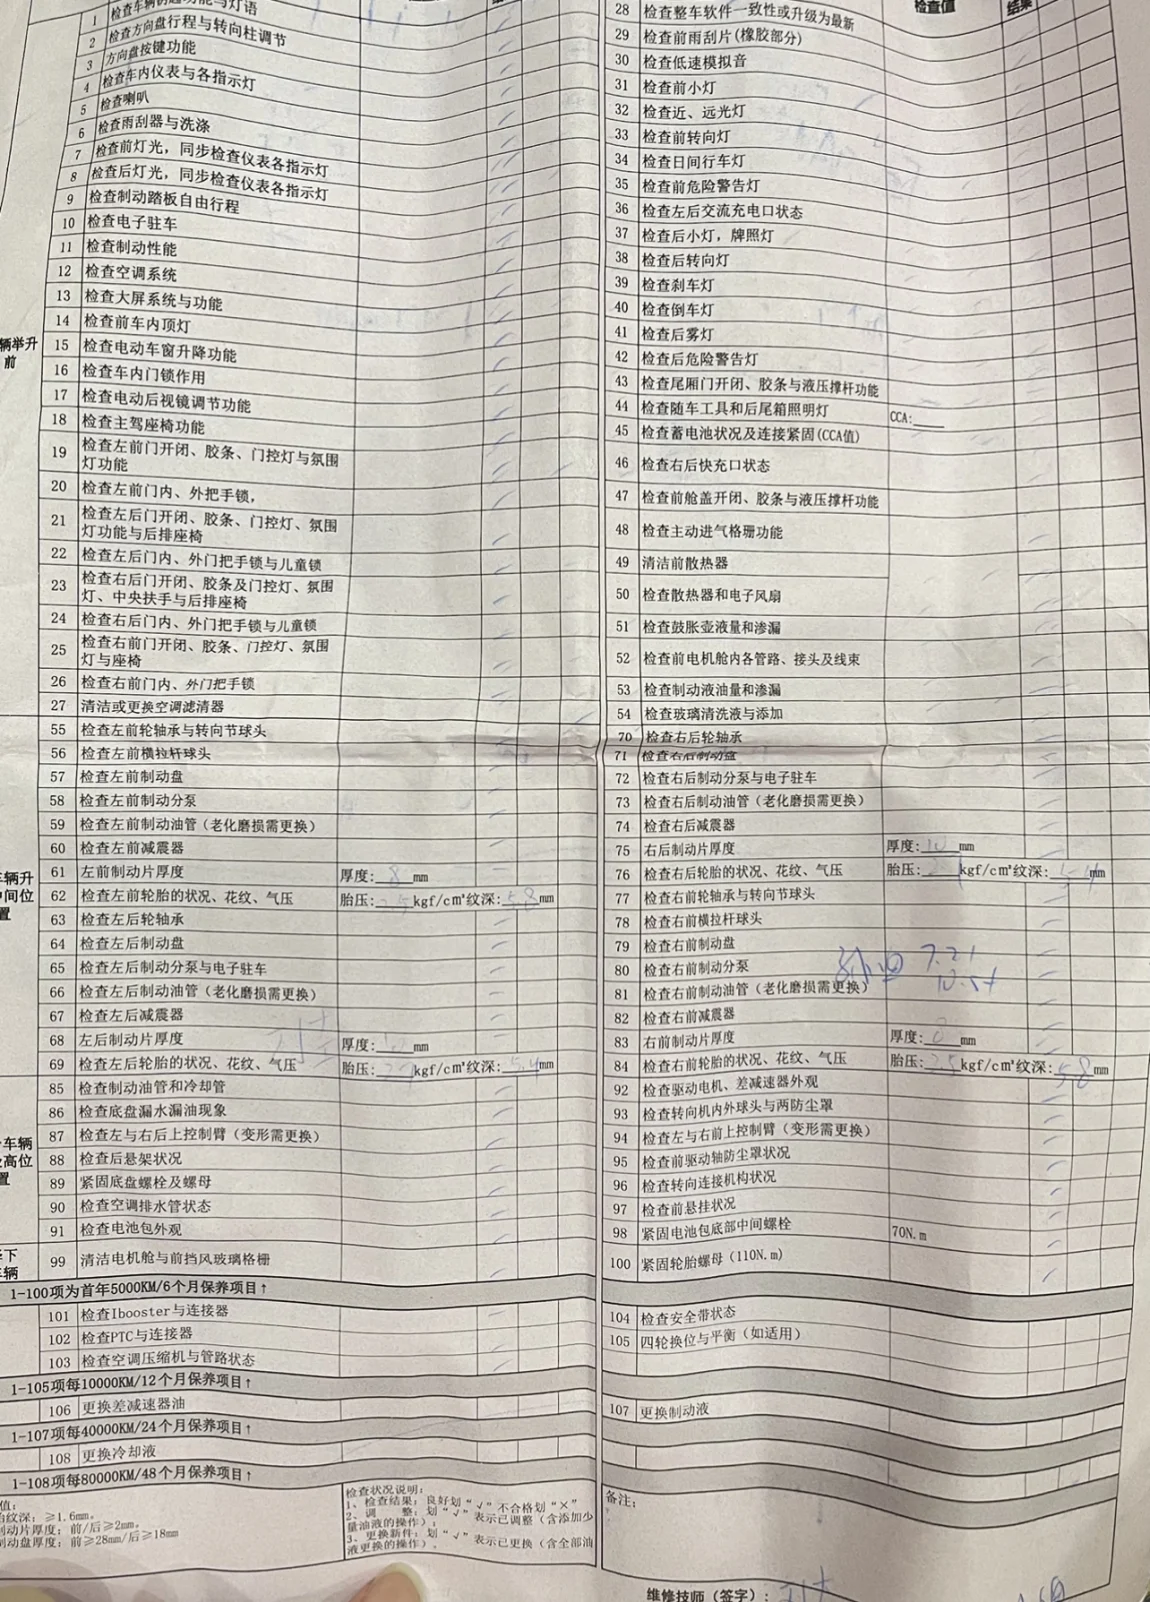 1 检查车辆钥匙功能与灯语
2 检查方向盘行程与转向柱调节
3 方向盘按键功能
4 检查车内仪表与各指示灯
5 检查喇叭
6 检查雨刮器与洗涤
7 检查前灯光，同步检查仪表各指示灯
8 检查后灯光，同步检查仪表各指示灯
9 检查制动踏板自由行程
10 检查电子驻车
11 检查制动性能
12 检查空调系统
13 检查大屏系统与功能
14 检查前车内顶灯
辆举升
前
15 检查电动车窗升降功能
16 检查车内门锁作用
17 检查电动后视镜调节功能
18 检查主驾座椅功能
19 检查左前门开闭、胶条、门控灯与氛围
灯功能
20 检查左前门内、外把手锁，
21 检查左后门开闭、胶条、门控灯、氛围
灯功能与后排座椅
22 检查左后门内、外门把手锁与儿童锁
23 检查右后门开闭、胶条及门控灯、氛围
灯、中央扶手与后排座椅
24 检查右后门内、外门把手锁与儿童锁
25 检查右前门开闭、胶条、门控灯、氛围
灯与座椅
26 检查右前门内、外门把手锁
27 清洁或更换空调滤清器
检查值 结果
28 检查整车软件一致性或升级为最新
29 检查前雨刮片(橡胶部分)
30 检查低速模拟音
31 检查前小灯
32 检查近、远光灯
33 检查前转向灯
34 检查日间行车灯
35 检查前危险警告灯
36 检查左后交流充电口状态
37 检查后小灯，牌照灯
38 检查后转向灯
39 检查刹车灯
40 检查倒车灯
41 检查后雾灯
42 检查后危险警告灯
43 检查尾厢门开闭、胶条与液压撑杆功能
44 检查随车工具和后尾箱照明灯
45 检查蓄电池状况及连接紧固(CCA值) CCA:
46 检查右后快充口状态
47 检查前舱盖开闭、胶条与液压撑杆功能
48 检查主动进气格栅功能
49 清洁前散热器
50 检查散热器和电子风扇
51 检查鼓胀壶液量和渗漏
52 检查前电机舱内各管路、接头及线束
53 检查制动液油量和渗漏
54 检查玻璃清洗液与添加
55 检查左前轮轴承与转向节球头
56 检查左前横拉杆球头
57 检查左前制动盘
58 检查左前制动分泵
59 检查左前制动油管（老化磨损需更换）
60 检查左前减震器
61 左前制动片厚度 厚度: 8 mm
车辆升
中间位
置
62 检查左前轮胎的状况、花纹、气压 胎压: 2.5 kgf/cm²纹深: 5.8 mm
63 检查左后轮轴承
64 检查左后制动盘
65 检查左后制动分泵与电子驻车
66 检查左后制动油管（老化磨损需更换）
67 检查左后减震器
68 左后制动片厚度 厚度: 10 mm
69 检查左后轮胎的状况、花纹、气压 胎压: kgf/cm²纹深: 5.4 mm
70 检查右后轮轴承
71 检查右后制动盘
72 检查右后制动分泵与电子驻车
73 检查右后制动油管（老化磨损需更换）
74 检查右后减震器
75 右后制动片厚度 厚度: 10 mm
76 检查右后轮胎的状况、花纹、气压 胎压: kgf/cm²纹深: 5.4 mm
77 检查右前轮轴承与转向节球头
78 检查右前横拉杆球头
79 检查右前制动盘
80 检查右前制动分泵
7.21
81 检查右前制动油管（老化磨损需更换）
82 检查右前减震器
83 右前制动片厚度 厚度: 8 mm
84 检查右前轮胎的状况、花纹、气压 胎压: 2.5 kgf/cm²纹深: 5.8 mm
85 检查制动油管和冷却管
86 检查底盘漏水漏油现象
87 检查左与右后上控制臂（变形需更换）
车辆
高位
置
88 检查后悬架状况
89 紧固底盘螺栓及螺母
90 检查空调排水管状态
91 检查电池包外观
92 检查驱动电机、差减速器外观
93 检查转向机内外球头与两防尘罩
94 检查左与右前上控制臂（变形需更换）
95 检查前驱动轴防尘罩状况
96 检查转向连接机构状况
97 检查前悬挂状况
98 紧固电池包底部中间螺栓 70N.m
下
车辆
99 清洁电机舱与前挡风玻璃格栅
100 紧固轮胎螺母（110N.m）
1-100项为首年5000KM/6个月保养项目↑
101 检查Ibooster与连接器
102 检查PTC与连接器
103 检查空调压缩机与管路状态
104 检查安全带状态
105 四轮换位与平衡（如适用）
1-105项每10000KM/12个月保养项目↑
106 更换差减速器油
107 更换制动液
1-107项每40000KM/24个月保养项目↑
108 更换冷却液
1-108项每80000KM/48个月保养项目↑
值:
纹深: ≥1.6mm。
制动片厚度: 前/后≥2mm。
制动盘厚度: 前≥28mm/后≥18mm
检查状况说明:
1、检查结果: 良好划“√”不合格划“×”
2、调 整: 划“√”表示已调整（含添加少
量油液的操作）;
3、更换新件: 划“√”表示已更换（含全部油
液更换的操作）。
备注:
维修技师（签字）: